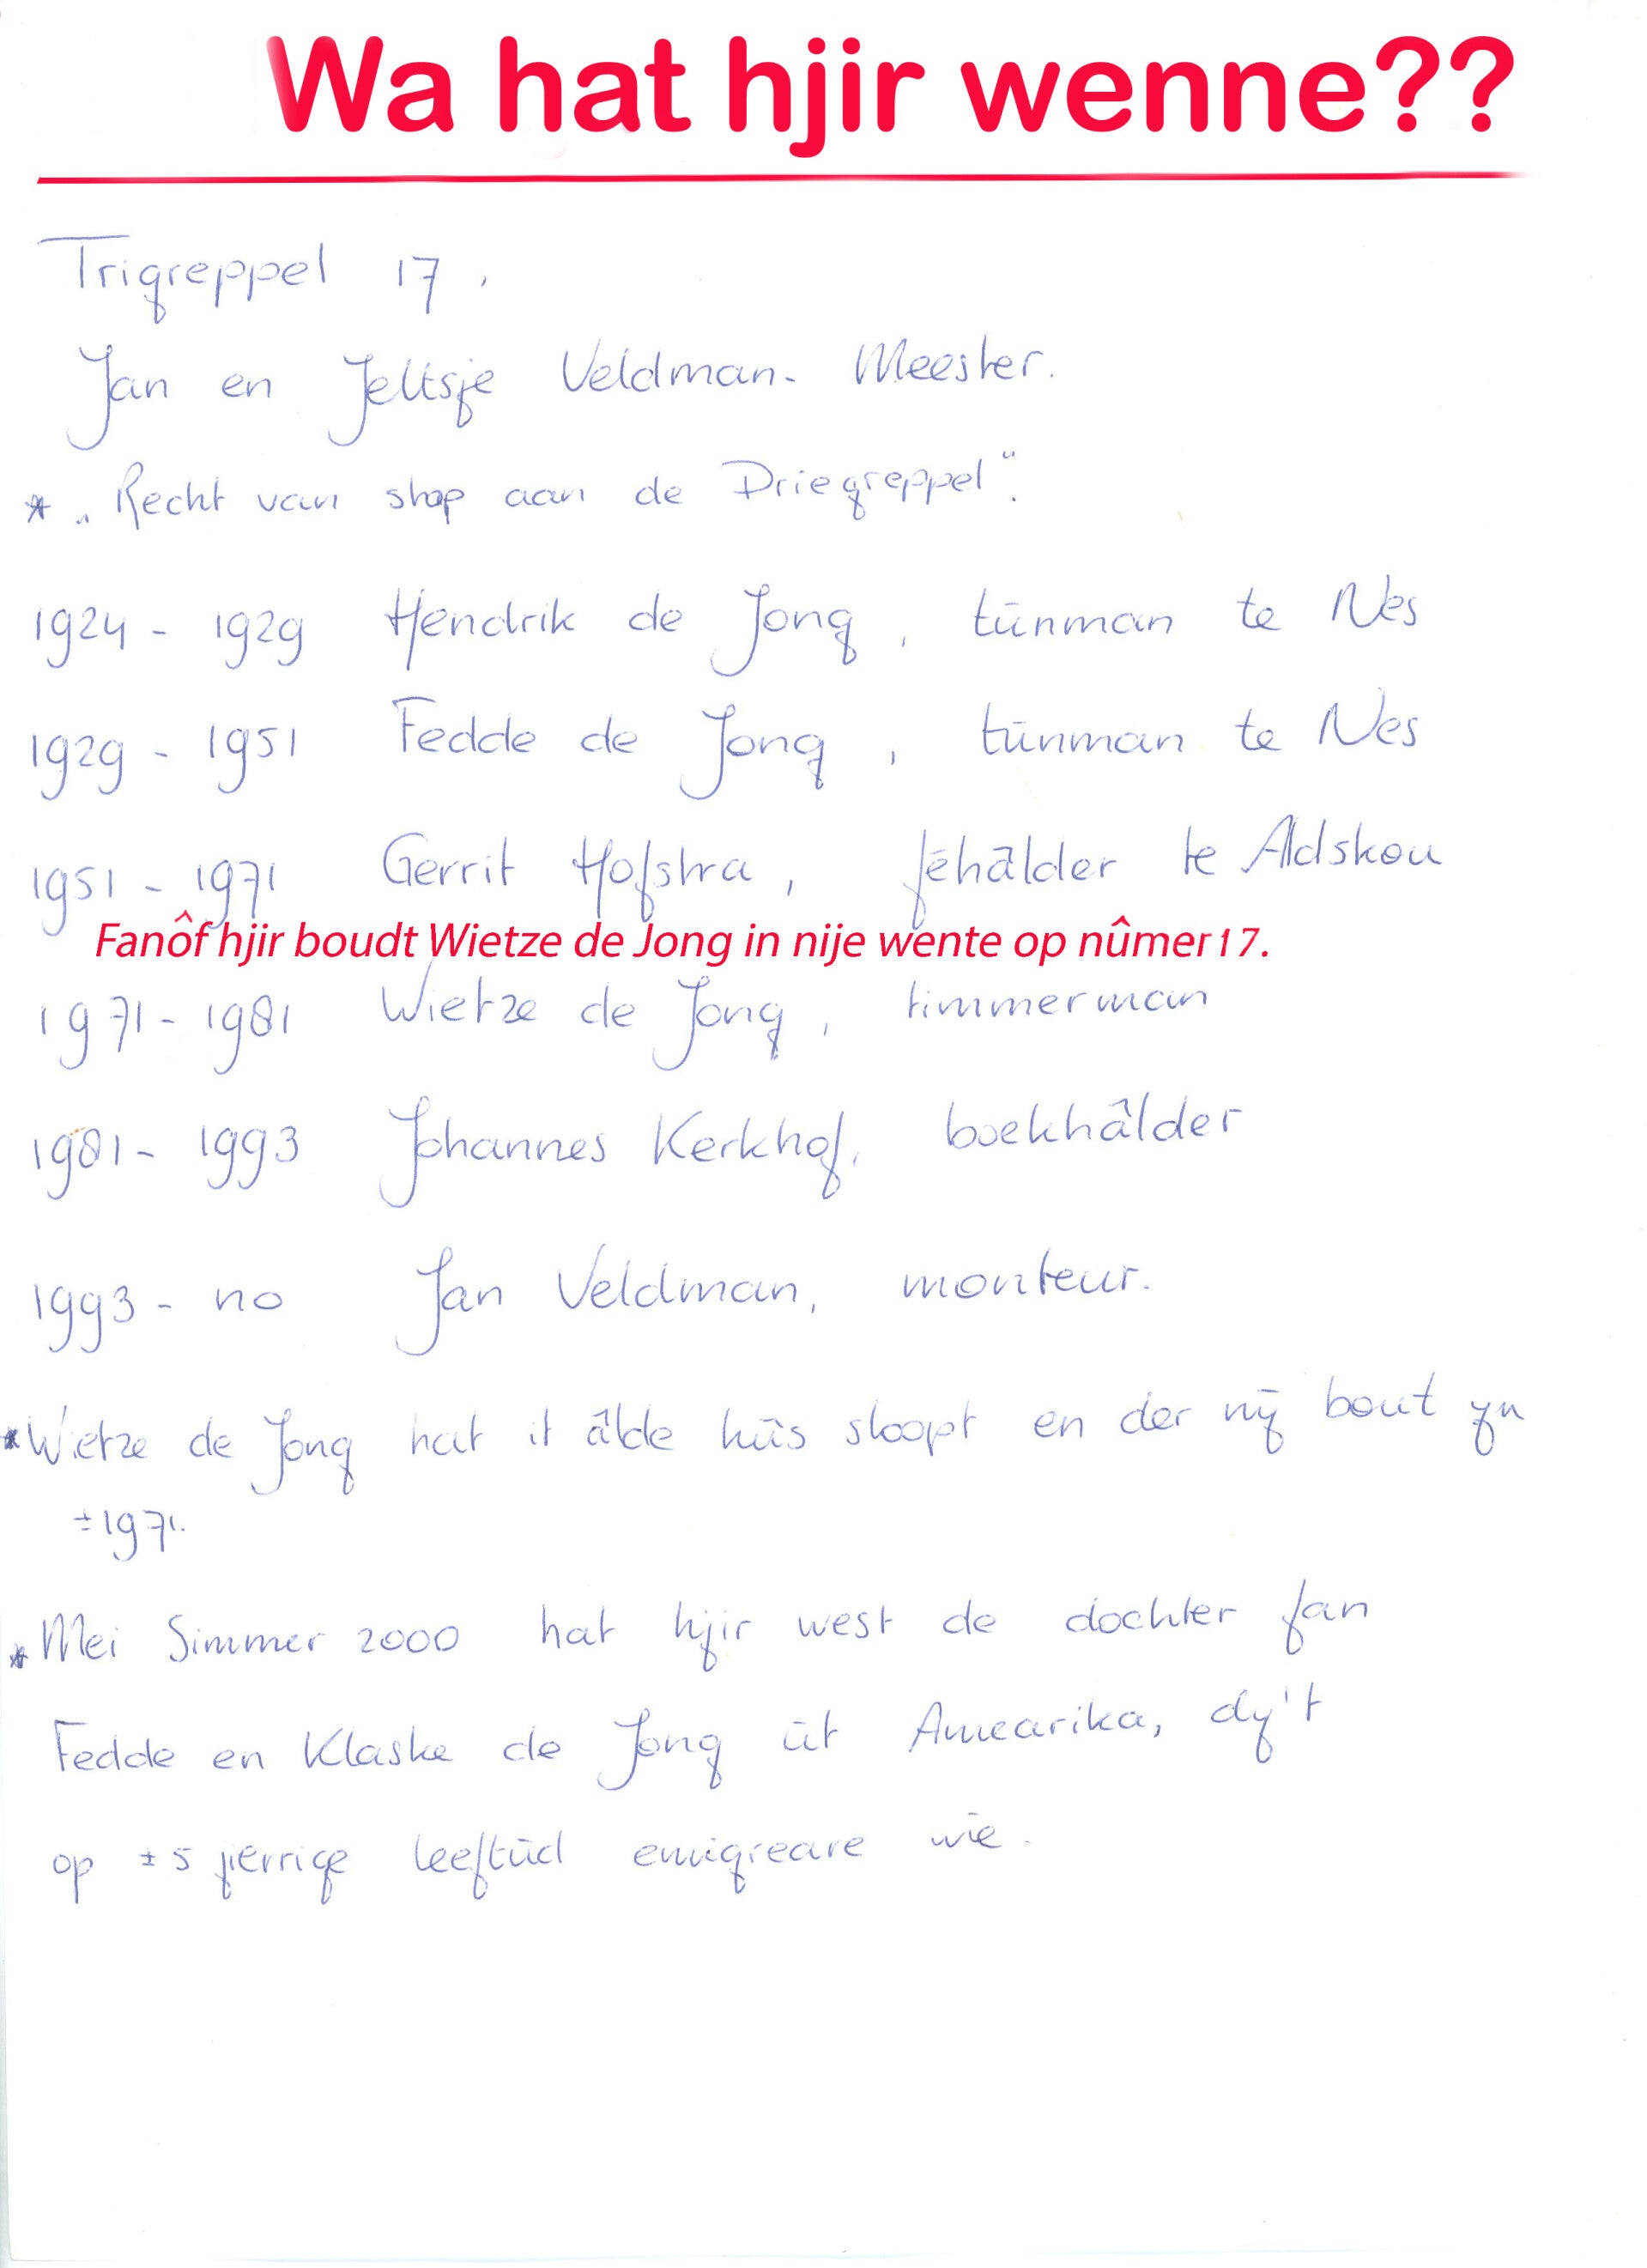 Wa hat hjir wenne??
Trigreppel 17.
Jan en Jeltsje Veldman-Meester.
* „Recht van stap aan de Driegreppel".
1924 - 1929 Hendrik de Jong, túnman te Nes
1929 - 1951 Fedde de Jong, túnman te Nes
1951 - 1971 Gerrit Hofstra, féhâlder te Aldskou
Fanôf hjir boudt Wietze de Jong in nije wente op nûmer 17.
1971 - 1981 Wietze de Jong, timmerman
1981 - 1993 Johannes Kerkhof, boekhâlder
1993 - no Jan Veldman, monteur.
* Wietze de Jong hat it âlde hûs sloopt en der nij bout yn
± 1971.
* Mei Simmer 2000 hat hjir west de dochter fan
Fedde en Klaske de Jong út Amearika, dy't
op ± 5 jierrige leeftiid emigreare wie.